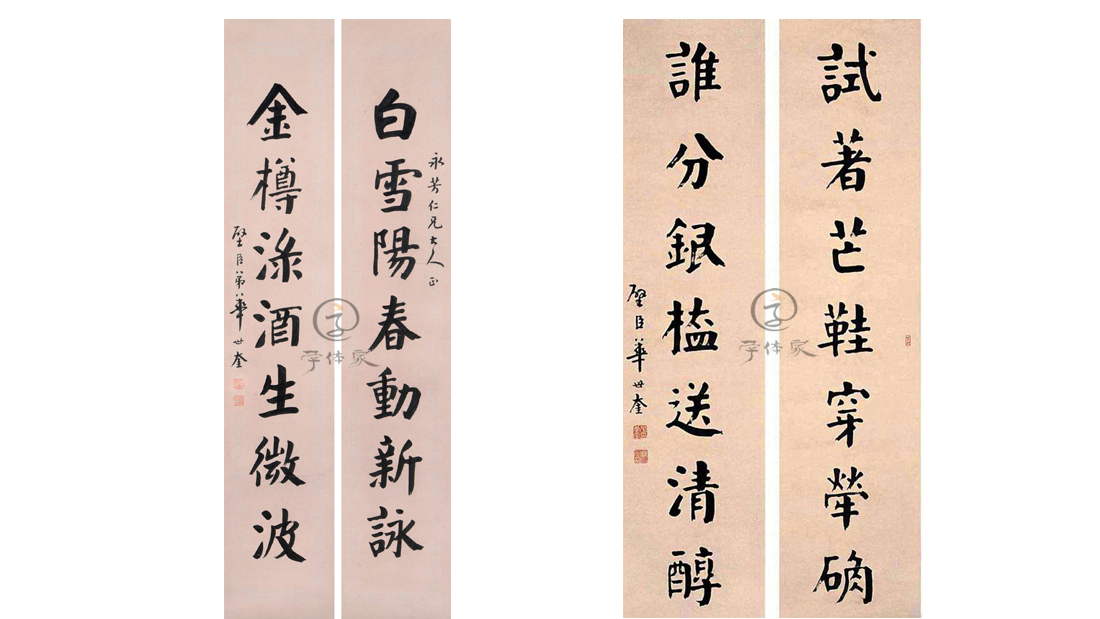 永芳仁兄大人正
白雪陽春動新詠
金樽渌酒生微波
璧臣弟華世奎
字体家
試著芒鞋穿犖确
誰分銀榼送清醇
璧臣華世奎
字体家